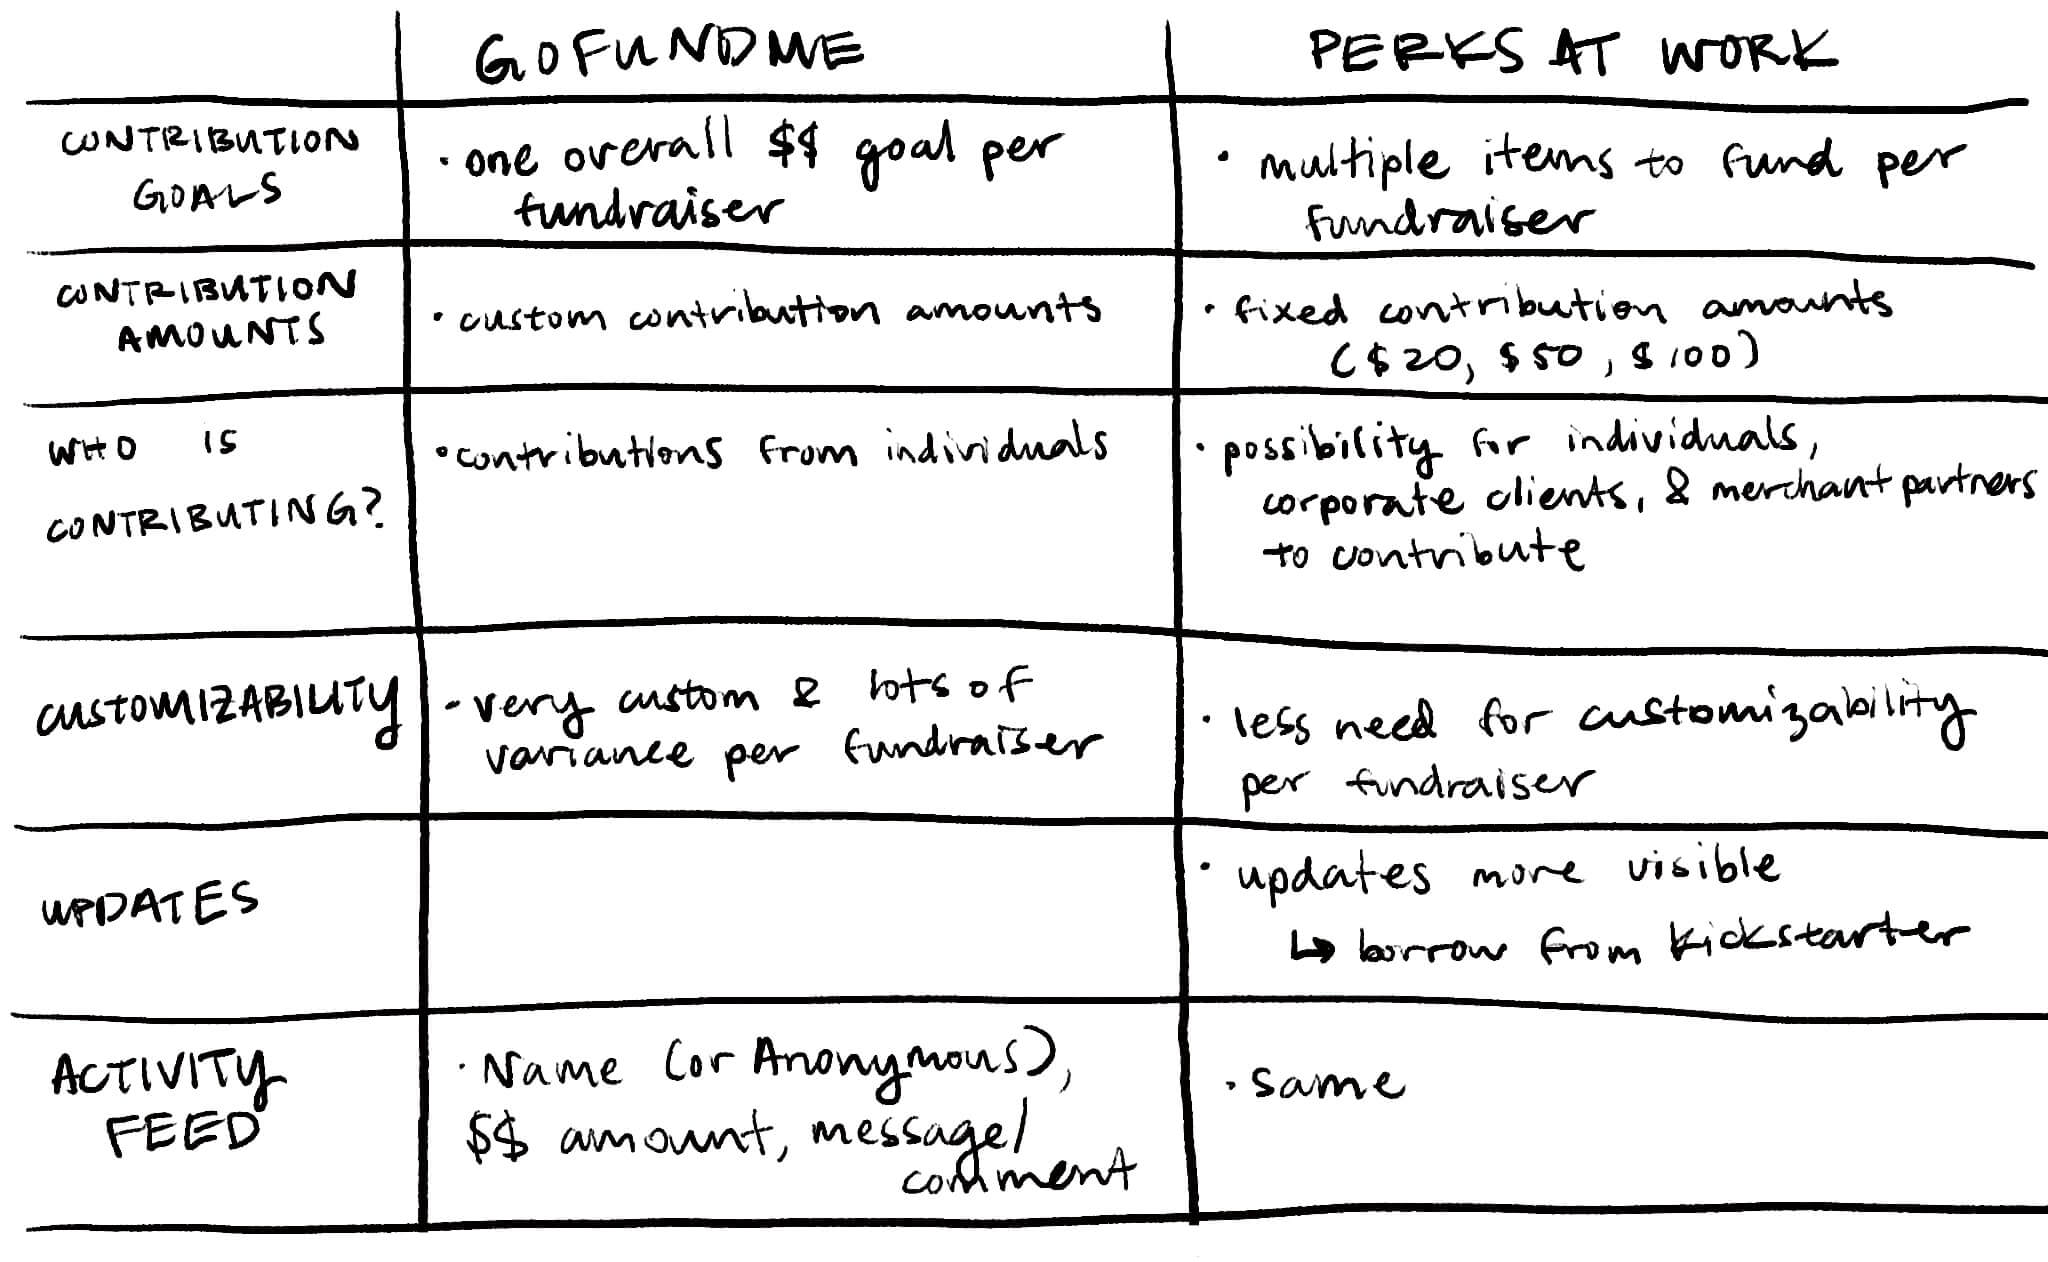 GOFUNDME
PERKS AT WORK
CONTRIBUTION
GOALS
· one overall $$ goal per
fundraiser
· multiple items to fund per
fundraiser
CONTRIBUTION
AMOUNTS
· custom contribution amounts
· fixed contribution amounts
($20, $50, $100)
WHO IS
CONTRIBUTING?
· contributions from individuals
· possibility for individuals,
corporate clients, & merchant partners
to contribute
CUSTOMIZABILITY
· very custom & lots of
variance per fundraiser
· less need for customizability
per fundraiser
UPDATES
· updates more visible
↳ borrow from Kickstarter
ACTIVITY
FEED
· Name (or Anonymous),
$$ amount, message/
comment
· same